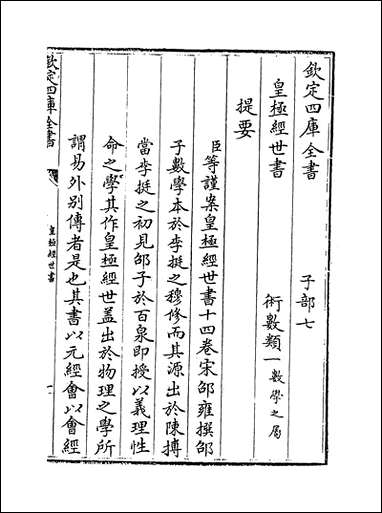 欽定四庫全書　　　子部七
皇極經世書　　　術數類一數學之屬
提要
臣等謹案皇極經世書十四卷宋邵雍撰邵
子數學本於李挺之穆修而其源出於陳摶
當李挺之初見邵子於百泉即授以義理性
命之學其作皇極經世蓋出於物理之學所
謂易外別傳者是也其書以元經會以會經
欽定四庫全書
皇極經世書
一